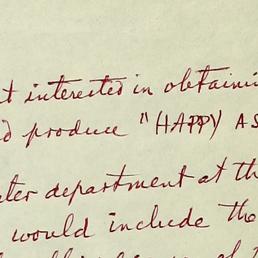 t interested in obtaini
d produce "HAPPY AS
ter department at th
would include the